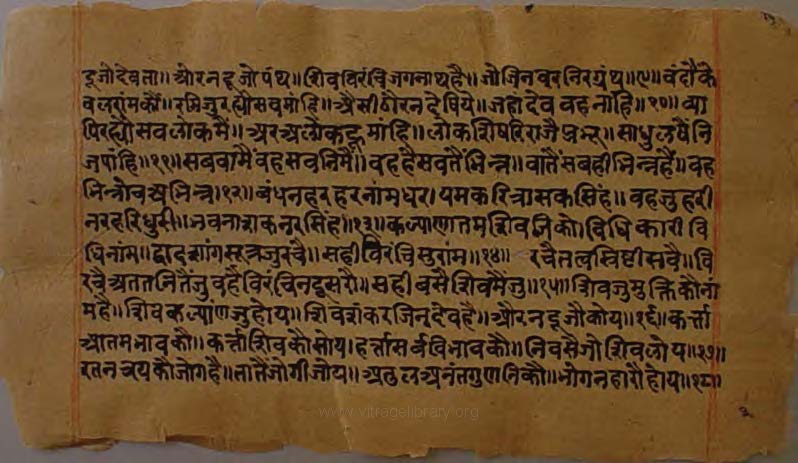 दूजो देवता॥ और न दूजो पंथ॥ शिव विरंचि जगनाथ है॥ जो जिनवर निरग्रंथ॥९॥ वंदौं के
वल राम कौं॥ रमि जु रह्यौ सब मांहि॥ ऐसी ठौर न देषिये॥ जहां देव वह नांहि॥१०॥ व्या
पि रह्यौ सब लोक मैं॥ अर अलोकहू मांहि॥ लोक शिषरि राजै प्रभू॥ साधु लषैं नि
ज पांहि॥११॥ सब वामैं वह सबनि मैं॥ वह है सबतैं भिन्न॥ वातैं सबही भिन्न हैं॥ वह
भिन्नो व अभिन्न॥१२॥ बंधन हर हर नाम धर। यम करि त्रासक सिंह॥ वह जु हरी
नरहरि धुरी॥ भवनाशक नरसिंह॥१३॥ कल्याणातम शिव जिको॥ विधिकारी वि
धि नांम॥ द्वादशांग सूत्र जु रचै॥ सही विरंचि सुरांम॥१४॥ रचै तत्व स्रिष्टी सबै॥ वि
रचै अतत नितैं जु वहै विरंचि न दूसरौ॥ सही बसै शिव मैं जु॥१५॥ शिव जु मुक्ति कौ नां
म है॥ शिव कल्यांण जु होय॥ शिव शंकर जिनदेव है॥ और न दूजौ कोय॥१६॥ कर्त्ता
आतम भाव कौ॥ कर्त्ता शिव कौ सोय। हर्त्ता सर्व विभाव कौ॥ निवसै जो शिव लोय॥१७॥
रतनत्रय कौ जोग है॥ तातैं जोगी जोय॥ अतुल अनंत गुणनि कौ॥ भोगनहारौ होय॥१८॥
www.vitragelibrary.org